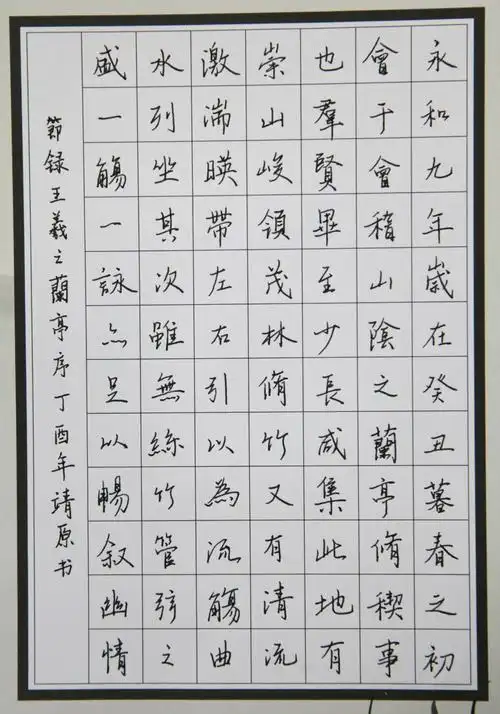 永和九年歲在癸丑暮春之初
會于會稽山陰之蘭亭脩稧事
也羣賢畢至少長咸集此地有
崇山峻領茂林脩竹又有清流
激湍暎帶左右引以為流觴曲
水列坐其次雖無絲竹管弦之
盛一觴一詠亦足以暢叙幽情
節録王羲之蘭亭序丁酉年靖原书